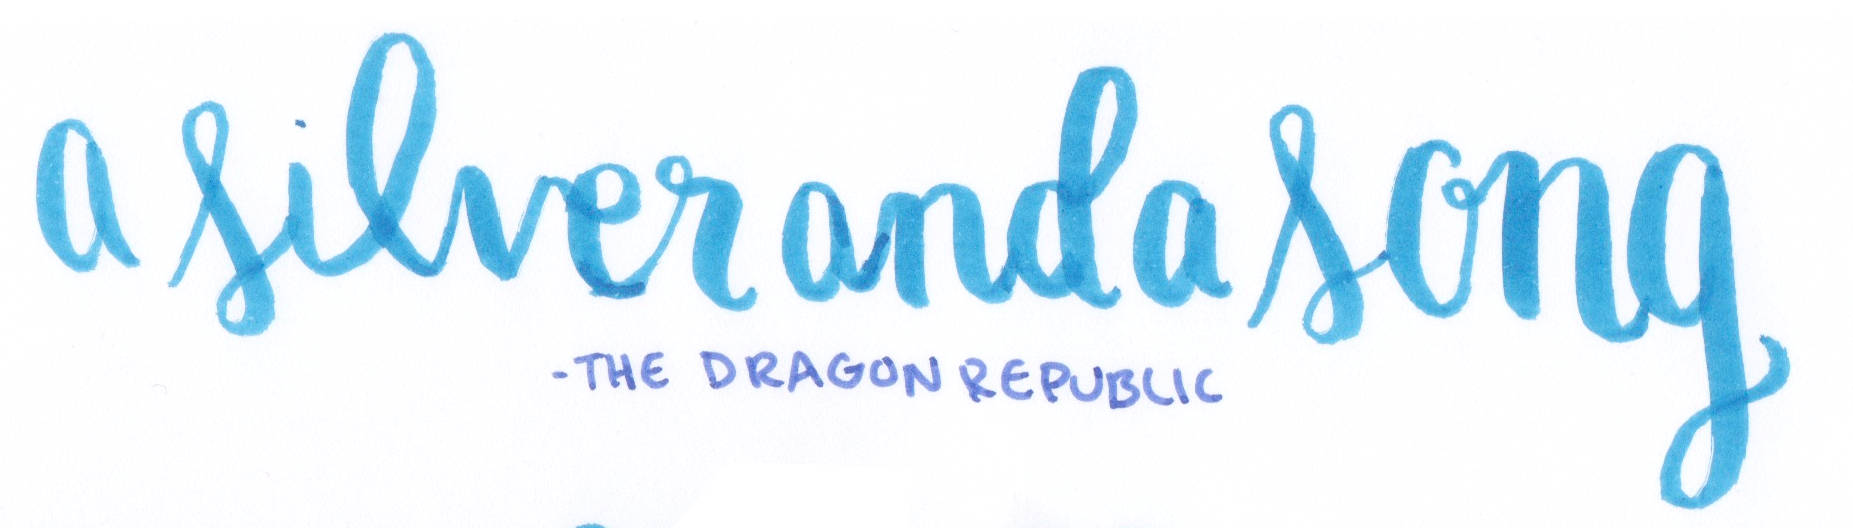 a silver and a song
-THE DRAGON REPUBLIC